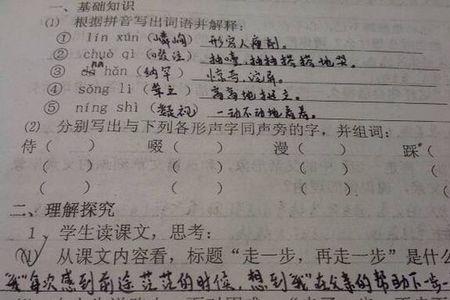 一、基础知识
(1) 根据拼音写出词语并解释:
① lín xún (嶙峋) 形容人瘦削。
② chuò qì (啜泣) 抽噎,抽抽搭搭地哭。
③ nà hǎn (纳罕) 惊奇,诧异。
④ sǒng lì (耸立) 高高地挺立。
⑤ níng shì (凝视) 一动不动地看着。
(2) 分别写出与下列各形声字同声旁的字,并组词:
侍 ( ) 啜 ( ) 漫 ( ) 踩 (
( ) ( ) ( ) (
二、理解探究
1、学生读课文,思考:
(1) 从课文内容看,标题“走一步,再走一步”是什么
“我”每次感到前途茫茫的时候,想到“我”在父亲的帮助下一步一